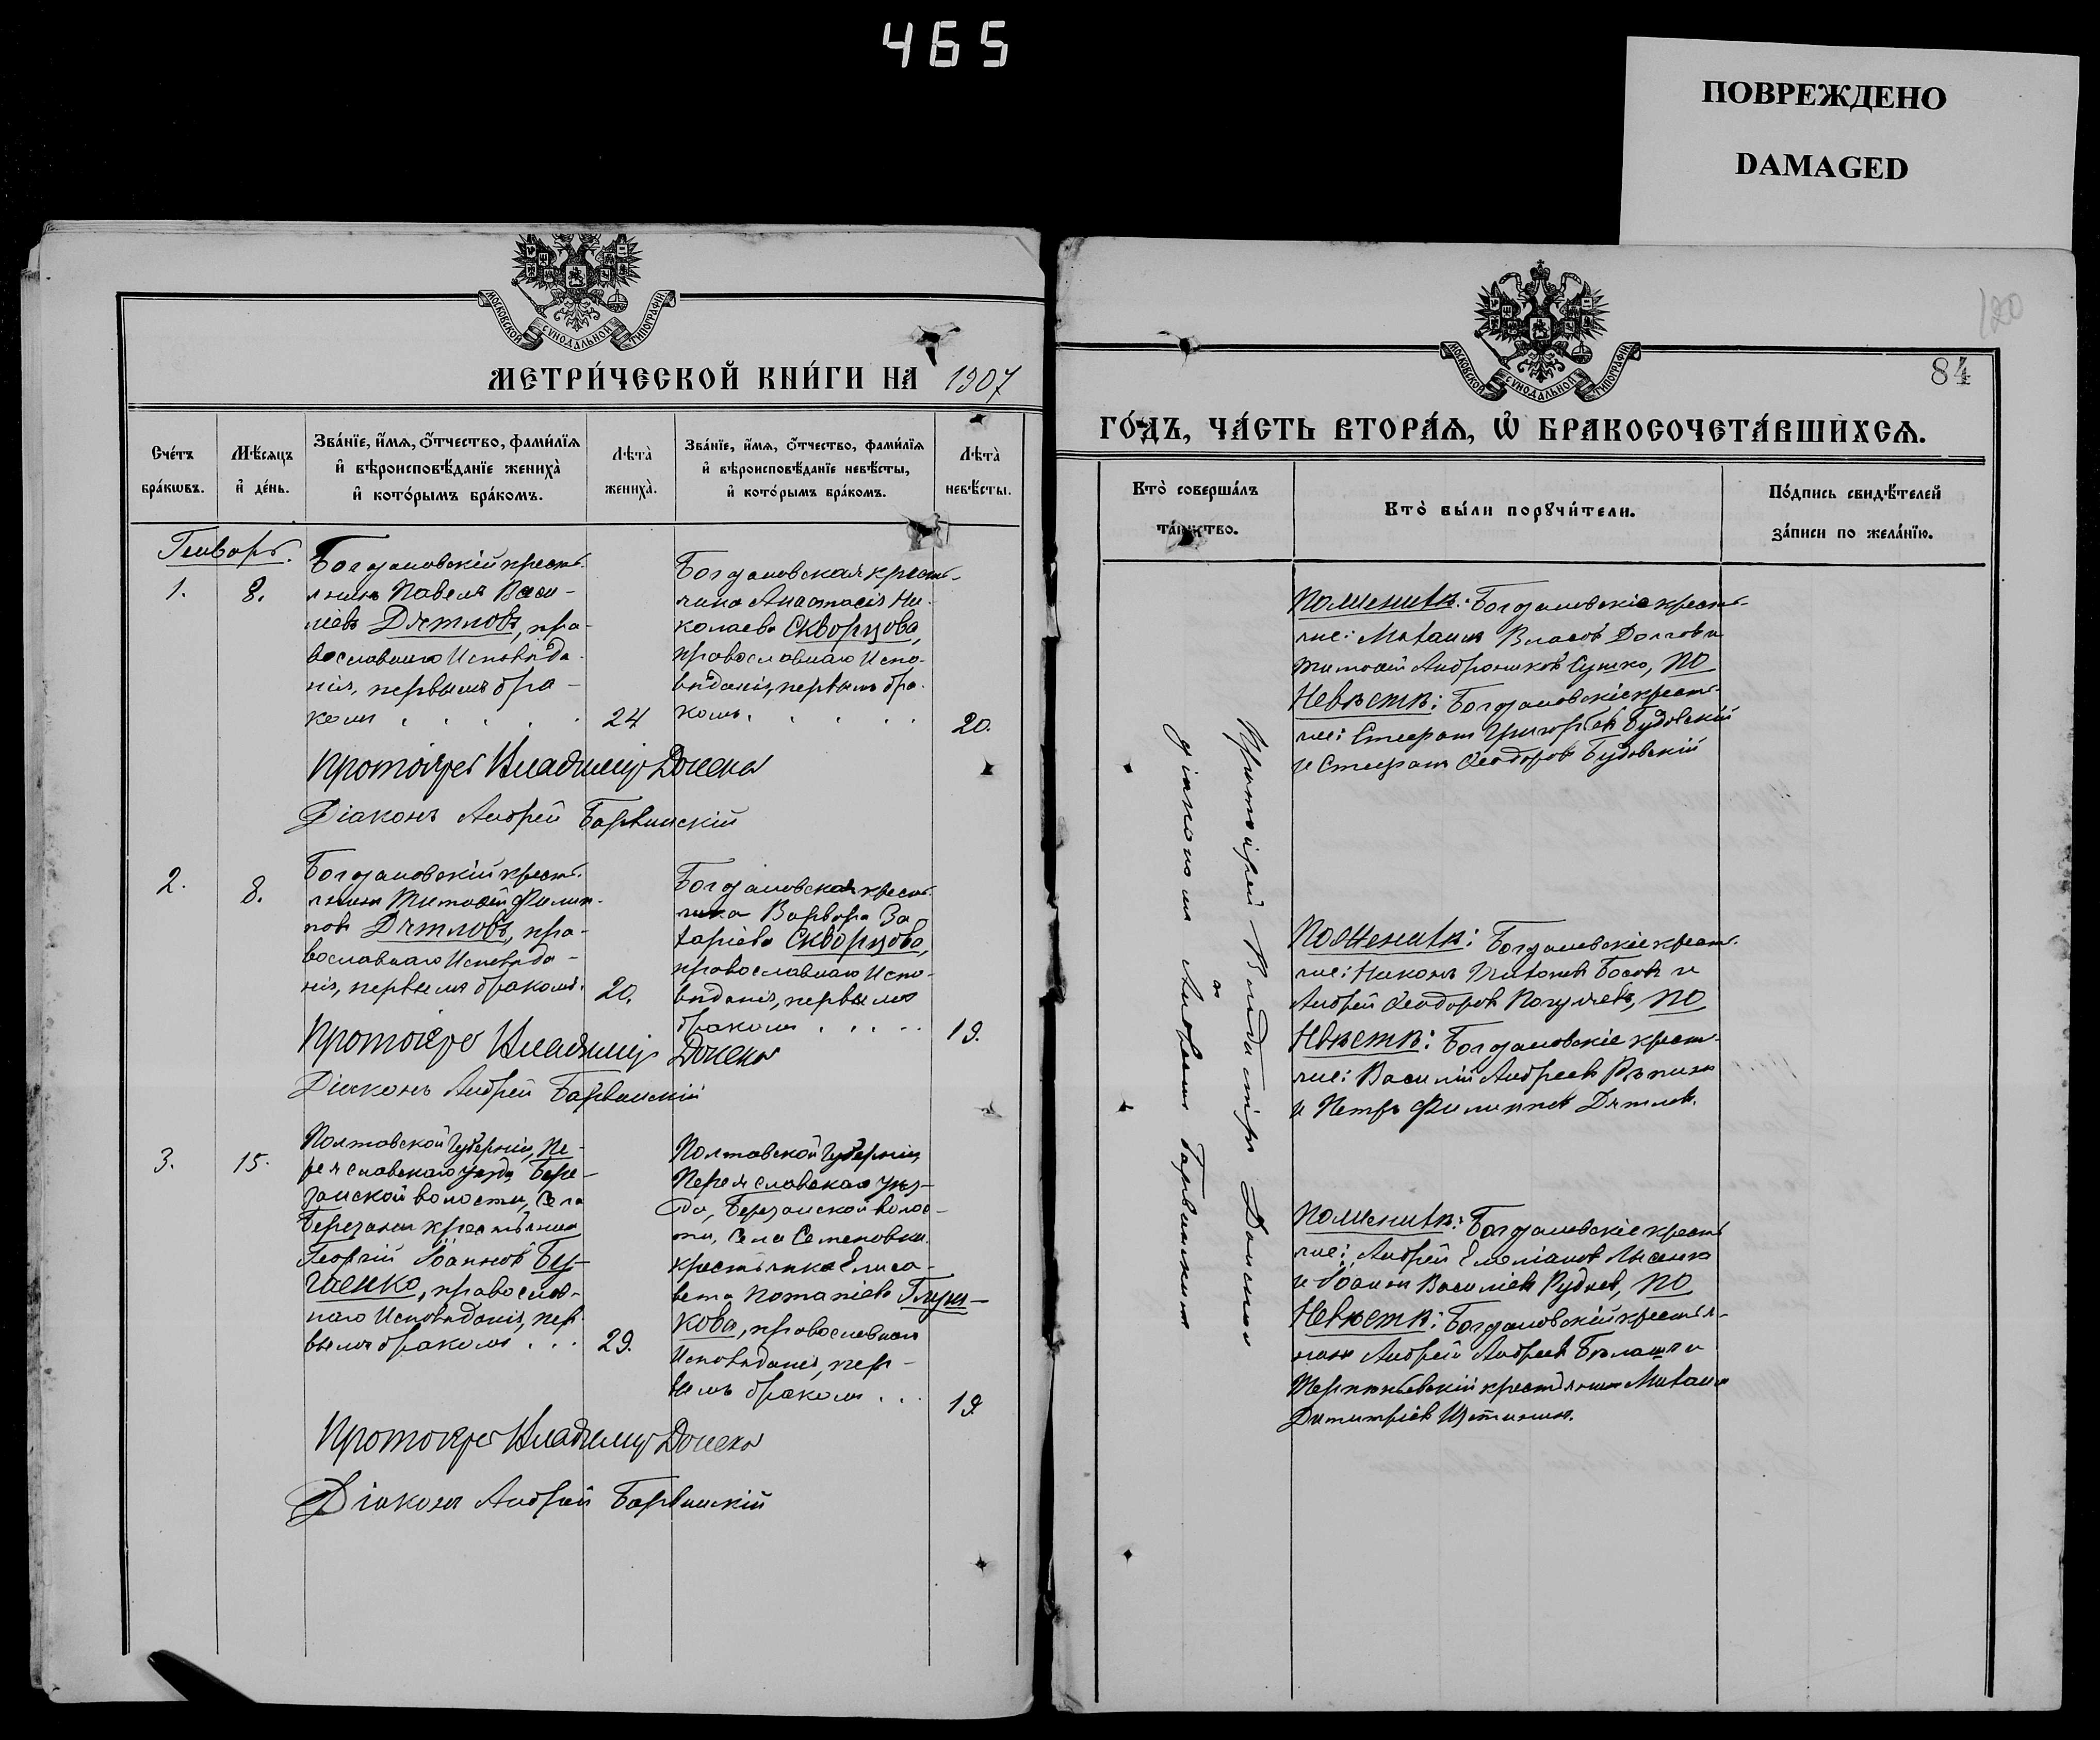 465
ПОВРЕЖДЕНО
DAMAGED
МОСКОВСКОЙ СѴНОДАЛЬНОЙ ТИПОГРАФІИ
МЕТРИ́ЧЕСКОЙ КНИ́ГИ НА 1907
Сче́тъ бра́кѡвъ.
Мѣ́сяцъ и҆ де́нь.
Зва́нїе, и҆́мѧ, ѻ҆́тчество, фами́лїѧ
и҆ вѣроисповѣ́данїе жениха̀
и҆ кото́рымъ бра́комъ.
Лѣта̀ жениха̀.
Зва́нїе, и҆́мѧ, ѻ҆́тчество, фами́лїѧ
и҆ вѣроисповѣ́данїе невѣ́сты,
и҆ кото́рымъ бра́комъ.
Лѣта̀ невѣ́сты.
Генварь.
1. 8.
Богдановскій кресть-
янинъ Павелъ Васи-
ліевъ Дятловъ, пра-
вославнаго Исповѣда-
нія, первымъ бра-
комъ . . . . . 24
Богдановская кресть-
янка Анастасія Ни-
колаева Скворцова,
православнаго Испо-
вѣданія, первымъ бра-
комъ. . . . . 20.
Протоіерей Владиміръ Донецкій
Діаконъ Андрей Барвинскій
2. 8.
Богдановскій кресть-
янинъ Тимофей Филип-
повъ Дятловъ, пра-
вославнаго Исповѣда-
нія, первымъ бракомъ. 20.
Богдановская кресть-
янка Варвара За-
харіева Скворцова,
православнаго Испо-
вѣданія, первымъ
бракомъ . . . . 19.
Протоіерей Владиміръ Донецкій
Діаконъ Андрей Барвинскій
3. 15.
Полтавской Губерніи, Пе-
реяславскаго уѣзда, Бере-
занской волости, села
Березани крестьянинъ
Георгій Іоанновъ Бу-
гаенко, православ-
наго Исповѣданія, пер-
вымъ бракомъ . . . 29.
Полтавской Губерніи,
Переяславскаго уѣз-
да, Березанской волос-
ти, села Семеновки
крестьянка Елиса-
вета Потапіева Глуш-
кова, православнаго
Исповѣданія, пер-
вымъ бракомъ . . . 19.
Протоіерей Владиміръ Донецкій
Діаконъ Андрей Барвинскій
120
84
МОСКОВСКОЙ СѴНОДАЛЬНОЙ ТИПОГРАФІИ
ГО́ДЪ, ЧА́СТЬ ВТОРА́Ѧ, Ѡ҆ БРАКОСОЧЕТА́ВШИХСѦ.
Кто̀ соверша́лъ
та́инство.
Кто̀ бы́ли порꙋчи́тели.
По́дпись свидѣ́телей
за́писи по жела́нїю.
Протоіерей Владиміръ
съ
діакономъ Андреемъ Барвинскимъ
По Женихѣ: Богдановскіе кресть-
яне: Михаилъ Власовъ Долговъ и
Тимофей Андрониковъ Сушко, По
Невѣстѣ: Богдановскіе кресть-
яне: Стефанъ Григорьевъ Будовскій
и Стефанъ Феодоровъ Будовскій
По Женихѣ: Богдановскіе кресть-
яне: Никонъ Тихоновъ Босовъ и
Андрей Феодоровъ Погуляевъ, По
Нвѣстѣ: Богдановскіе кресть-
яне: Василій Андреевъ Рѣпинъ
и Петръ Филипповъ Дятловъ.
По Женихѣ: Богдановскіе кресть-
яне: Андрей Емеліановъ Лысенко
и Іоаннъ Василіевъ Рудневъ, По
Невѣстѣ: Богдановскій крестья-
нинъ Андрей Андреевъ Бѣлашъ и
крестьянинъ Михаилъ
Димитріевъ Щетининъ.